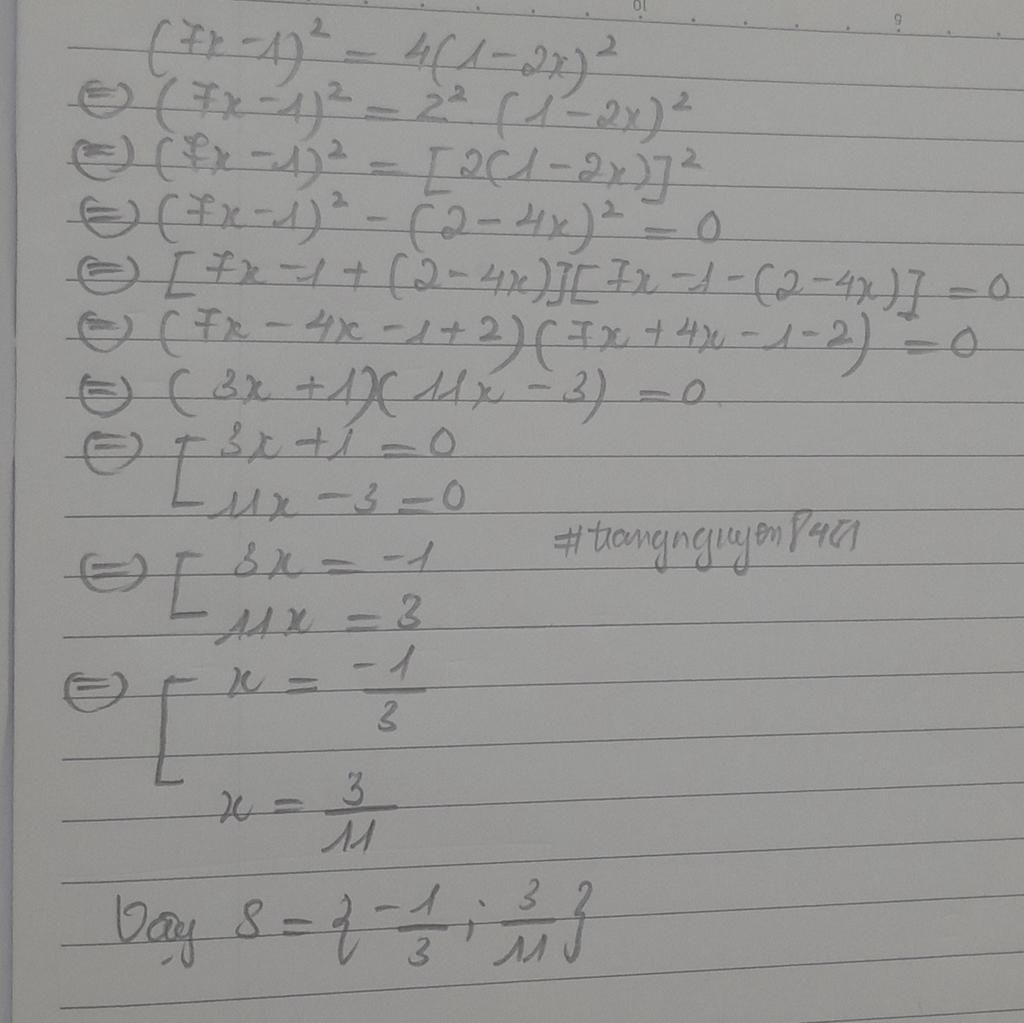 (7x-1)² = 4(1-2x)²
⇔ (7x-1)² = 2² (1-2x)²
⇔ (7x-1)² = [2(1-2x)]²
⇔ (7x-1)² - (2-4x)² = 0
⇔ [7x-1+(2-4x)][7x-1-(2-4x)] = 0
⇔ (7x-4x-1+2)(7x+4x-1-2) = 0
⇔ (3x+1)(11x-3) = 0
⇔ [ 3x+1 = 0
11x-3 = 0
⇔ [ 3x = -1
11x = 3
⇔ [ x = -1/3
x = 3/11
Vậy S = {-1/3; 3/11}